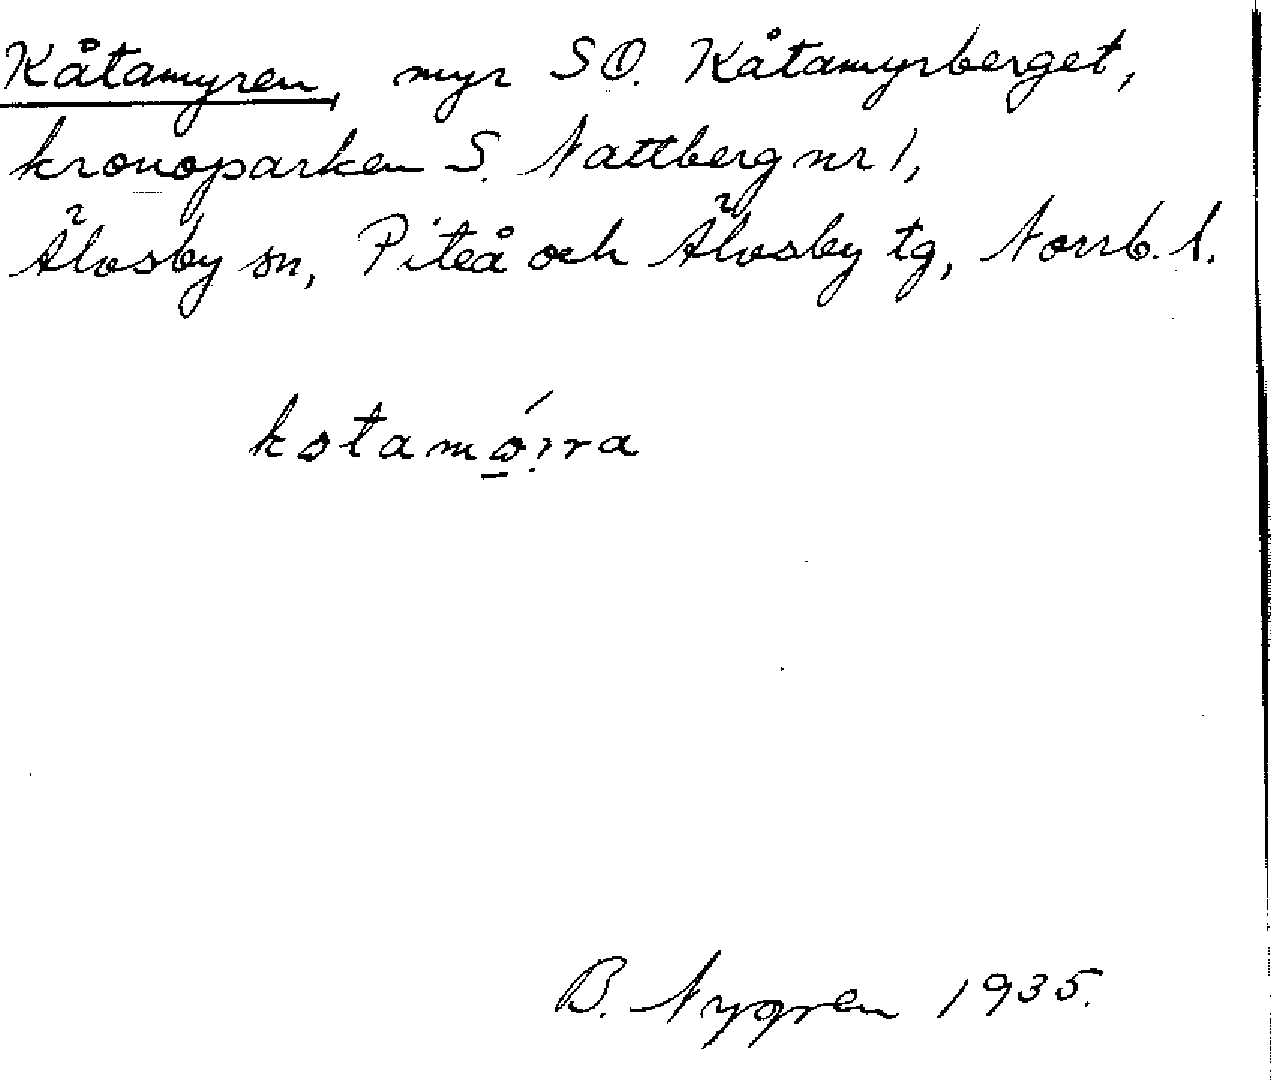 Kåtamyren, myr SO. Kåtamyrberget,
kronoparken S. Nattberg nr 1,
Älvsby sn, Piteå och Älvsby tg, Norrb. l.
kotamó̱ịra
B. Nygren 1935.